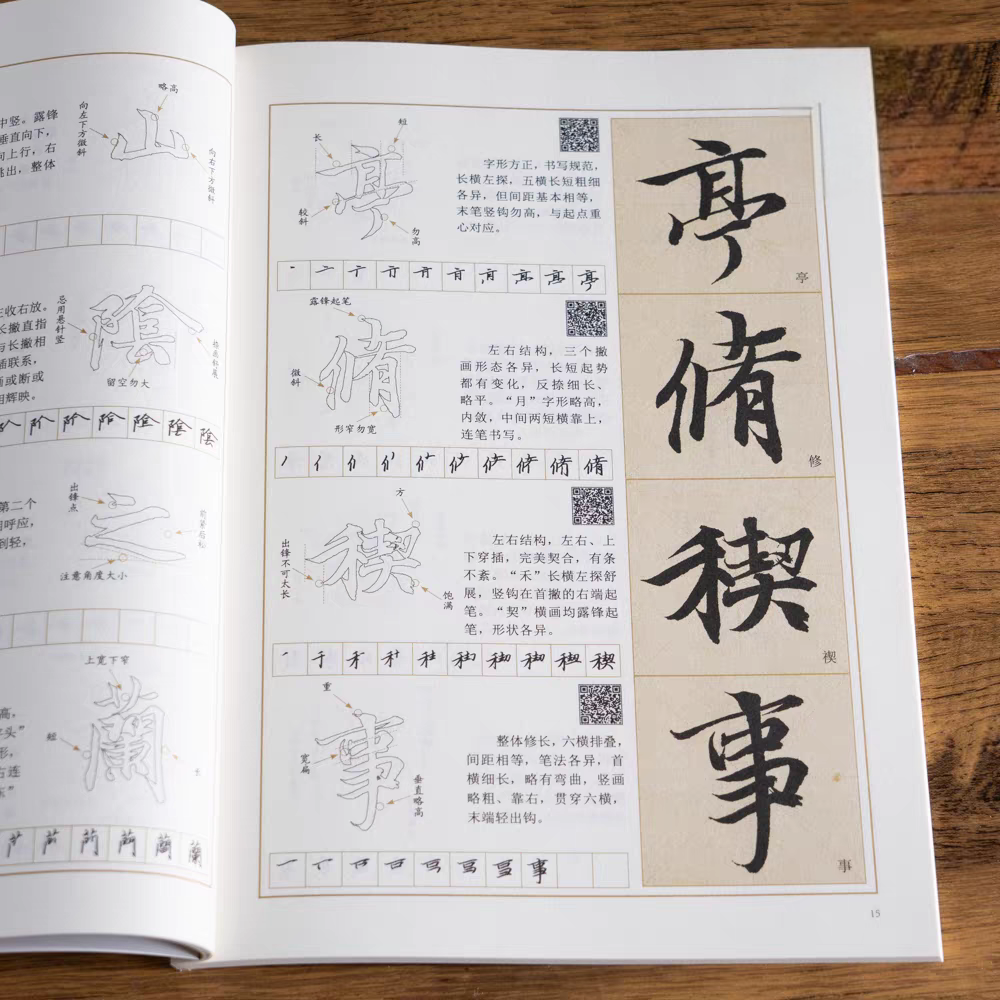 略高
向左下方微斜
向右下方微斜
中竖。露锋
垂直向下，
向上行，右
挑出，整体
忌用悬针竖
留空勿大
收右放。
长撇直指
与长撇相
插联系，
画或断或
相辉映。
出锋点
前紧后松
注意角度大小
第二个
相呼应，
到轻，
上宽下窄
短
长
高，
字头”
形，
右连
东”
短
长
较斜
勿高
字形方正，书写规范，
长横左探，五横长短粗细
各异，但间距基本相等，
末笔竖钩勿高，与起点重
心对应。
亭
亭
露锋起笔
微斜
形窄勿宽
左右结构，三个撇
画形态各异，长短起势
都有变化，反捺细长、
略平。“月”字形略高，
内敛，中间两短横靠上，
连笔书写。
脩
修
方
出锋不可太长
饱满
左右结构，左右、上
下穿插，完美契合，有条
不紊。“禾”长横左探舒
展，竖钩在首撇的右端起
笔。“契”横画均露锋起
笔，形状各异。
稧
禊
重
宽扁
垂直略高
整体修长，六横排叠，
间距相等，笔法各异，首
横细长，略有弯曲，竖画
略粗、靠右，贯穿六横，
末端轻出钩。
事
事
15